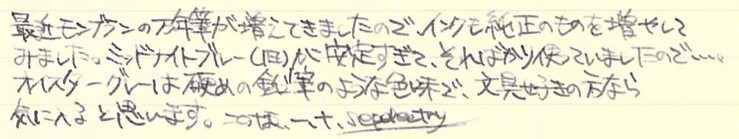 最近モンブランの万年筆が増えてきましたので、インクも純正のものを増やして
みました。ミッドナイトブルー(旧)が安定すぎて、そればかり使っていましたので…。
オイスターグレーは硬めの鉛筆のような色味で、文具好きの方なら
気に入ると思います。では、